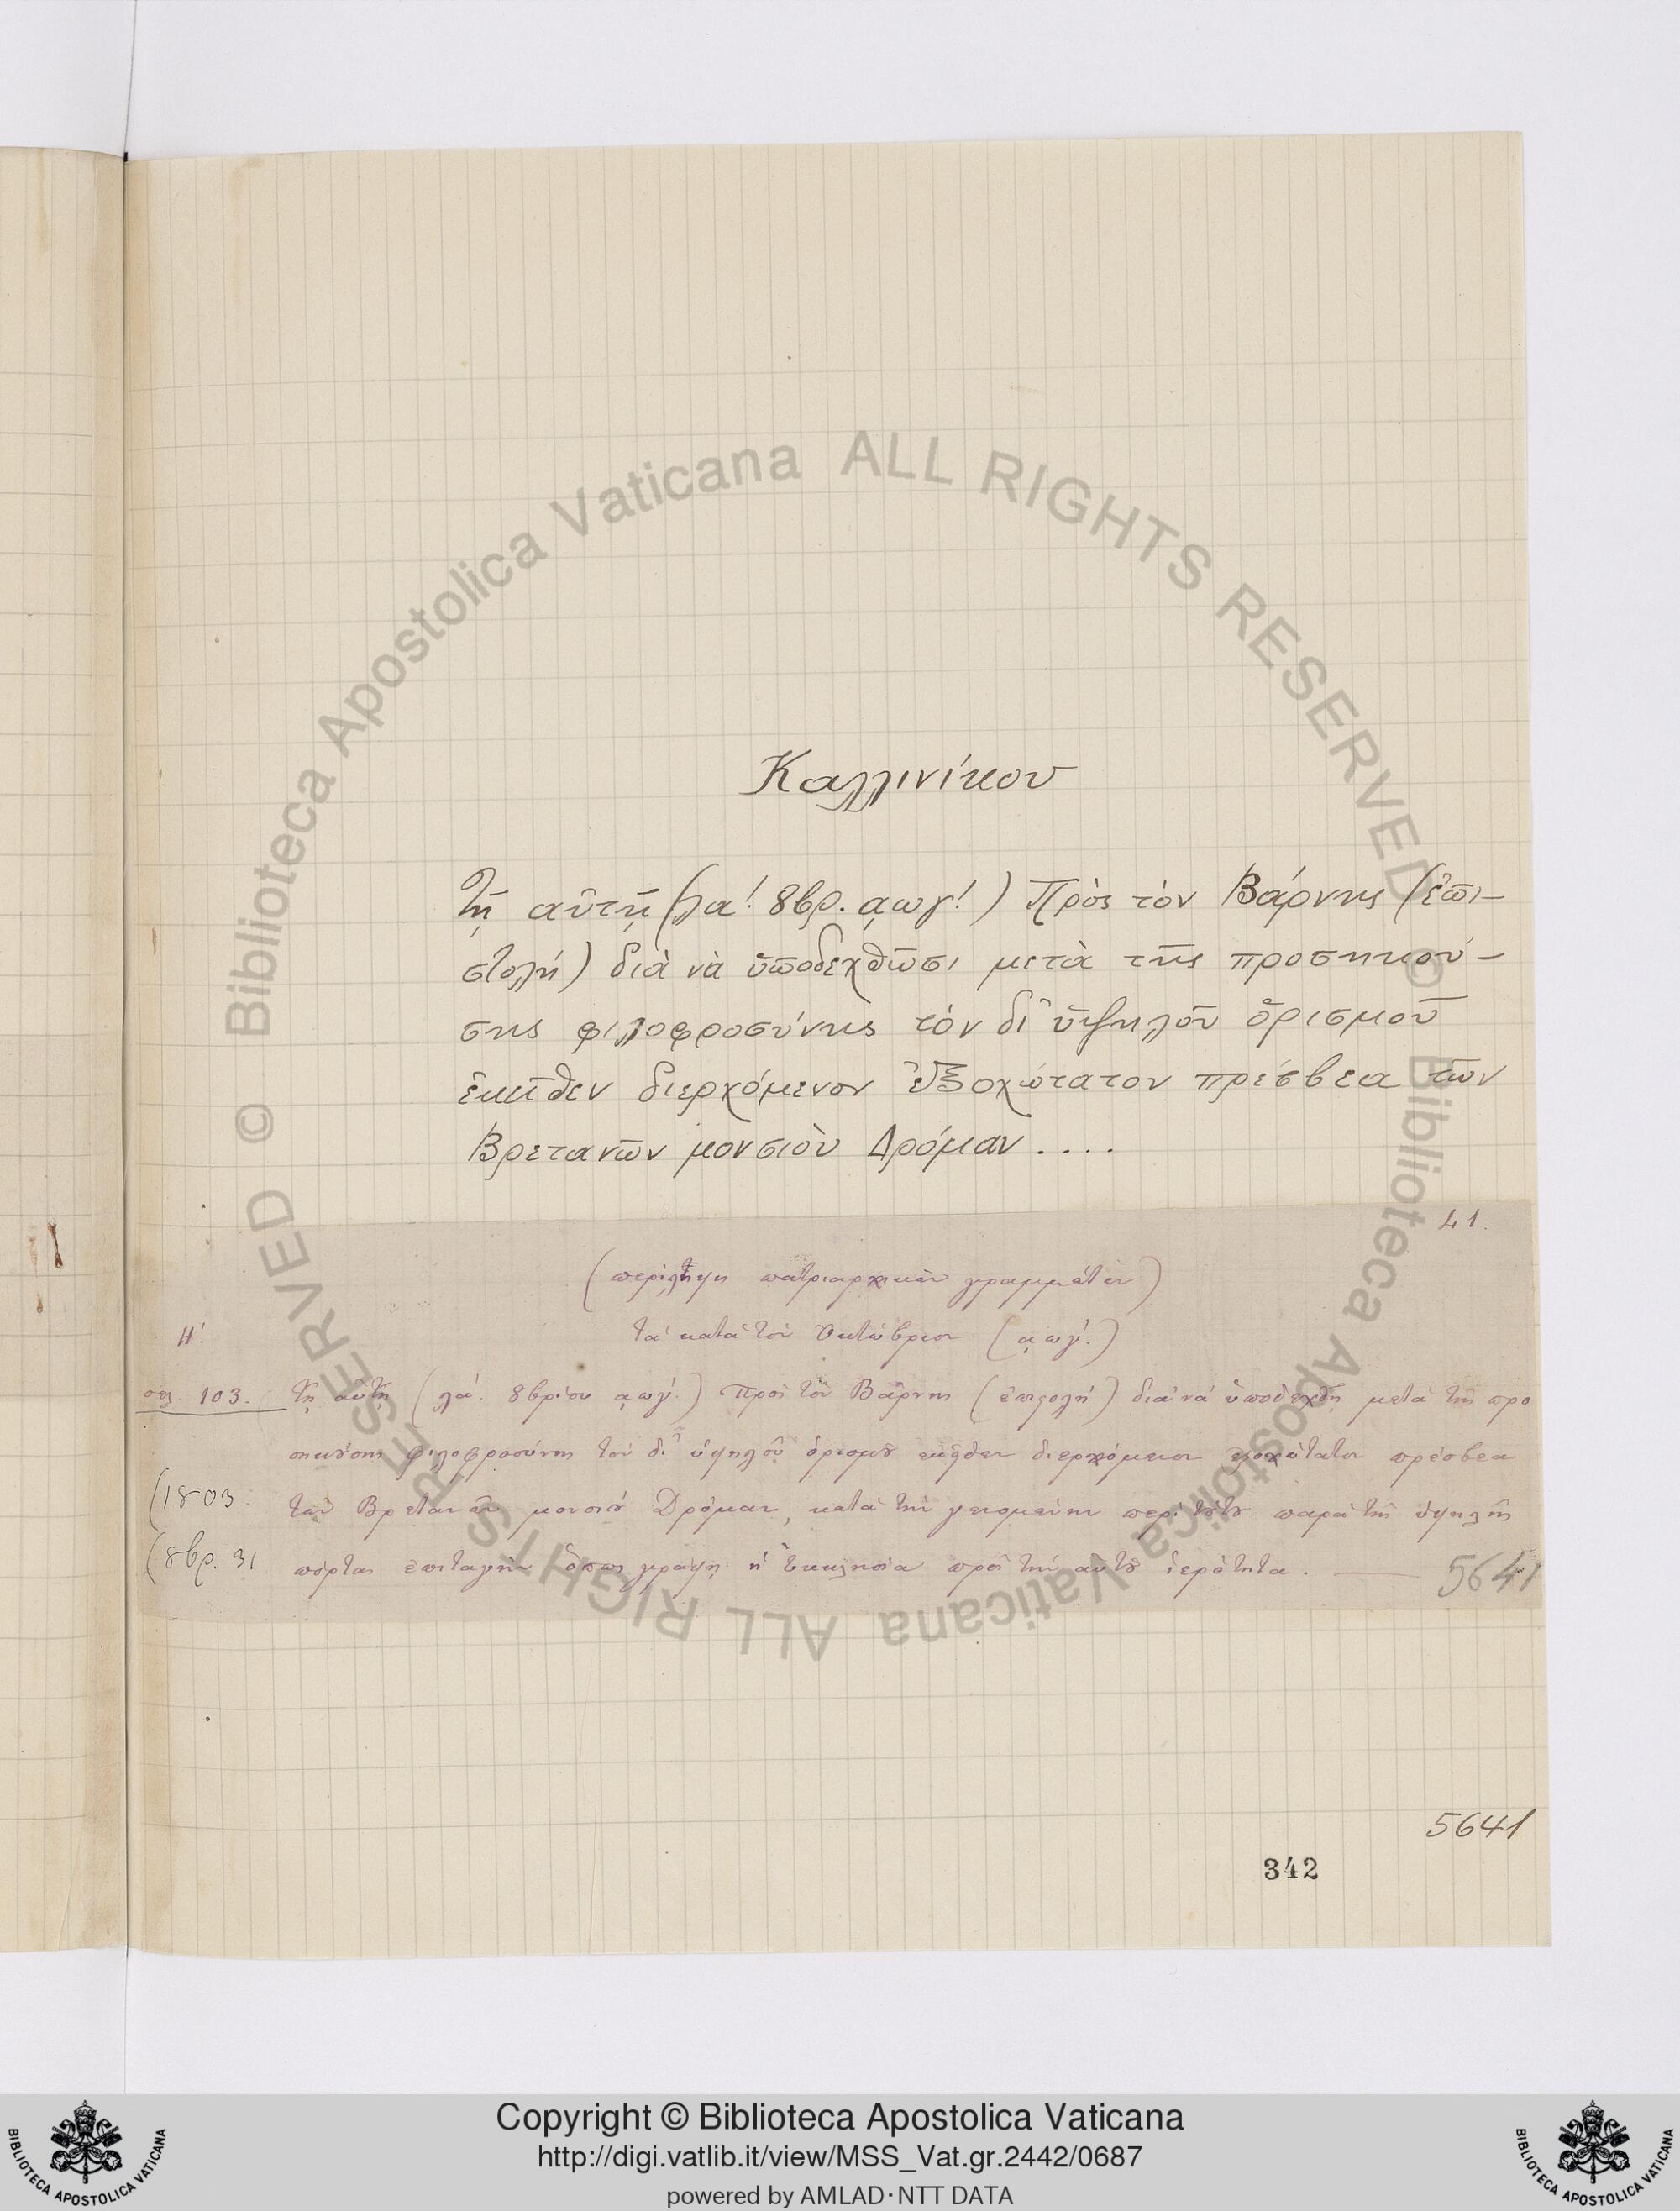 Καλλινίκου
Τῇ αὐτῇ (λα΄. 8βρ. ͵αωγ΄.) Πρὸς τὸν Βάρνης (ἐπι-
στολή) διὰ νὰ ὑποδεχθῶσι μετὰ τῆς προσηκού-
σης φιλοφροσύνης τὸν δι᾽ ὑψηλοῦ ὁρισμοῦ
ἐκεῖθεν διερχόμενον ἐξοχώτατον πρέσβεα τῶν
Βρετανῶν μονσιοὺ Δρόμαν....
41.
(περίληψη πατριαρχικῶν γραμμάτων)
Η΄. τὰ κατὰ τὸν Ὀκτώβριον (͵αωγ΄.)
σελ. 103. τῇ αὐτῇ (λα΄. 8βρίου ͵αωγ΄.) Πρὸς τὸν Βάρνης (ἐπιστολή) διὰ νὰ ὑποδεχθῇ μετὰ τῆς προ
σηκούσης φιλοφροσύνης τὸν δι᾽ ὑψηλοῦ ὁρισμοῦ ἐκεῖθεν διερχόμενον ἐξοχώτατον πρέσβεα
(1803 τῶν Βρετανῶν μονσιοὺ Δρόμαν, κατὰ τὴν γενομένην περὶ τούτου παρὰ τῆς ὑψηλῆς
(8βρ. 31 πόρτας ἐπιταγὴν ὅπως γράψῃ ἡ Ἐκκλησία πρὸς τὴν αὐτοῦ ἱερότητα. — 5641
5641
342
Copyright © Biblioteca Apostolica Vaticana
http://digi.vatlib.it/view/MSS_Vat.gr.2442/0687
powered by AMLAD·NTT DATA
BIBLIOTECA APOSTOLICA VATICANA
BIBLIOTECA APOSTOLICA VATICANA
© Biblioteca Apostolica Vaticana ALL RIGHTS RESERVED
© Biblioteca Apostolica Vaticana ALL RIGHTS RESERVED